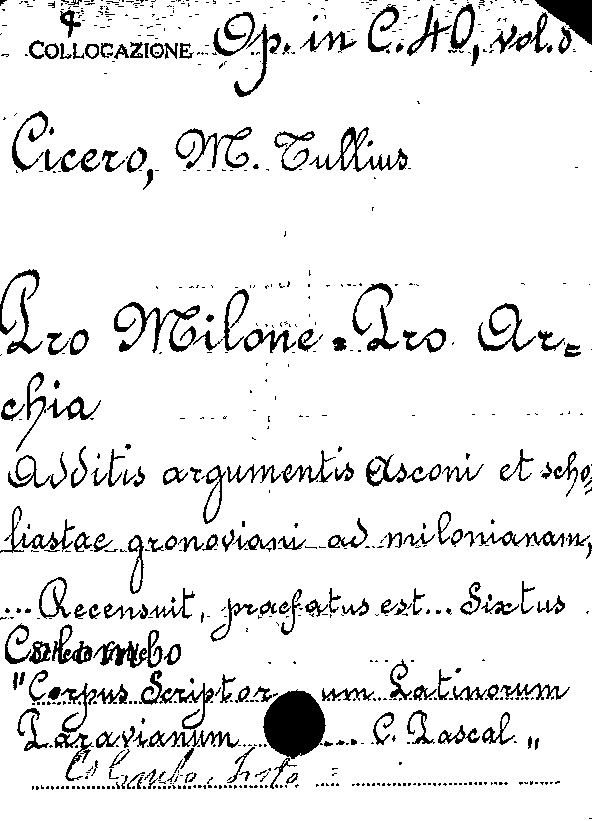 COLLOCAZIONE Op. in C. 40, vol. 8
Cicero, M. Tullius
Pro Milone = Pro Ar=
chia
Additis argumentis Asconi et scho=
liastae gronoviani ad milonianam,
... Recensuit, praefatus est... Sixtus
Colombo
"Corpus Scriptorum Latinorum
Paravianum ... C. Pascal"
Colombo, Sisto